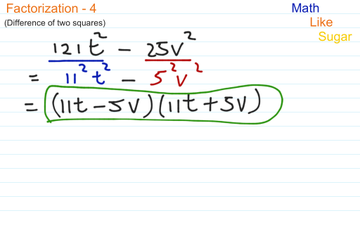 Factorization - 4
(Difference of two squares)
Math
Like
Sugar
121t² - 25v²
= 11²t² - 5²v²
= (11t - 5v)(11t + 5v)